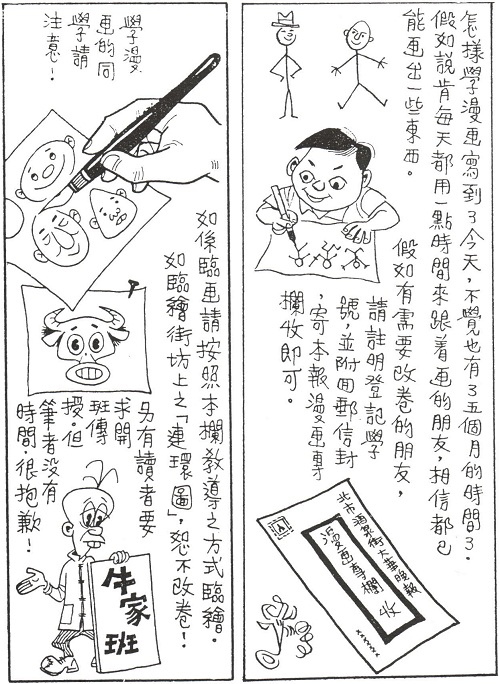 怎樣學漫画寫到了今天，不覺也有了五個月的時間了．
假如說肯每天都用一點時間來跟着画的朋友，相信都已
能画出一些東西．
假如有需要改卷的朋友，
請註明登記學
號，並附回郵信封
，寄本報漫画專
欄收即可．
北市酒泉街大華晚報
漫画專欄 收
xxxxxx
學漫
画的同
學請
注意！
如係臨画請按照本欄教導之方式臨繪．
如臨繪街坊上之「連環圖」，恕不改卷！
另有讀者要
求開
班傳
授．但
筆者没有
時間．很抱歉！
牛家班